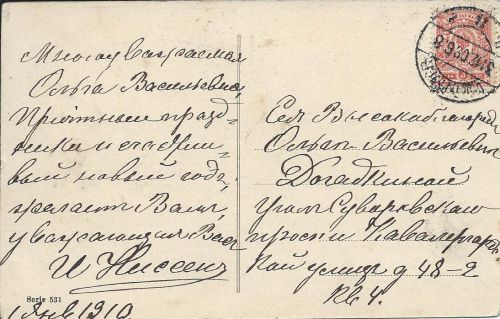 Многоуважаемая
Ольга Васильевна,
Приятный празд-
ники и счастли-
вый новый годъ
желаетъ Вамъ,
уважающая Васъ
И. Ниссенъ
1 янв. 1910.
Serie 531
Ея Высокоблагород.
Ольгѣ Васильевнѣ
Догадкиной
Уголъ Суворовскаго
просп. и Кавалергард-
ской улицы д 48-2
кв 4.